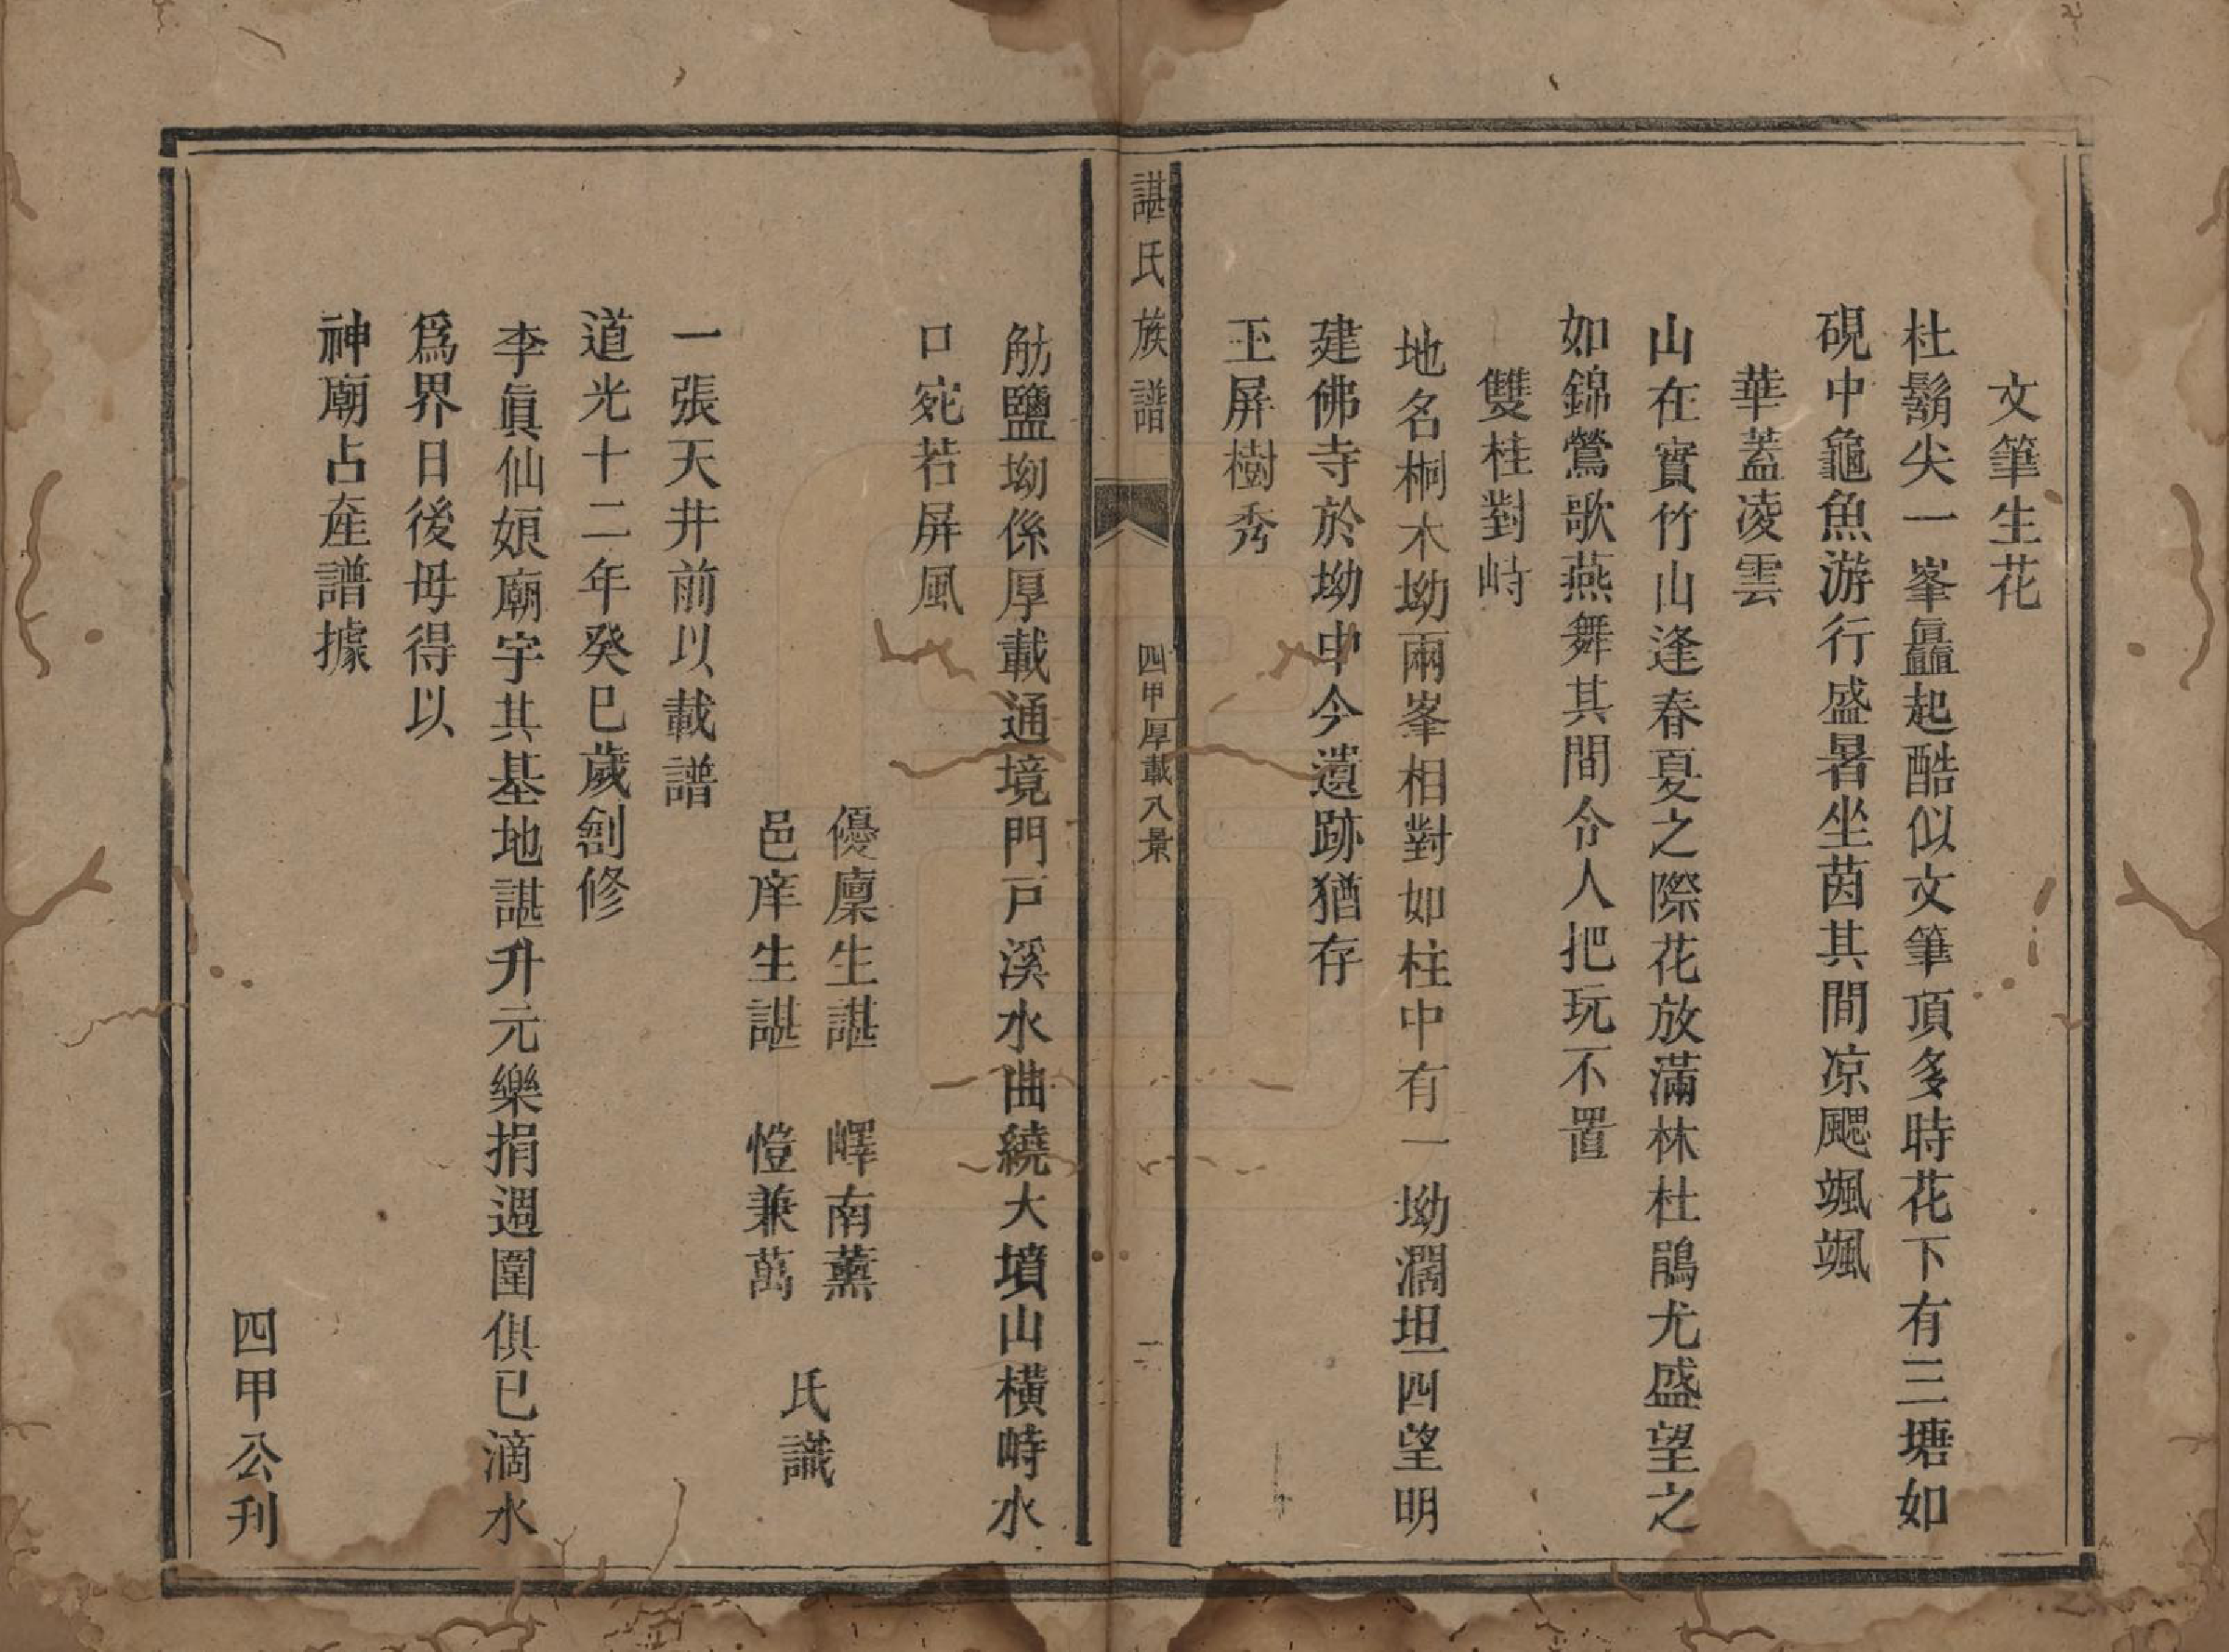 文筆生花
杜鬅尖一峯矗起酷似文筆頂多時花下有三塘如
硯中龜魚游行盛暑坐茵其間凉颸颯颯
華蓋凌雲
山在實竹山逢春夏之際花放滿林杜鵑尤盛望之
如錦鶯歌燕舞其間令人把玩不置
雙柱對峙
地名桐木坳兩峯相對如柱中有一坳濶坦四望明
建佛寺於坳中今遺跡猶存
玉屏樹秀
諶氏族譜
四甲厚載八景
二
觔鹽坳係厚載通境門戸溪水曲繞大墳山橫峙水
口宛若屏風
優廩生諶 嶧南薰
邑庠生諶 愷兼萬
氏識
一張天井前以載譜
道光十二年癸巳歲劊修
李眞仙娘廟宇其基地諶升元樂捐週圍俱已滴水
爲界日後毋得以
神廟占産譜據
四甲公刋